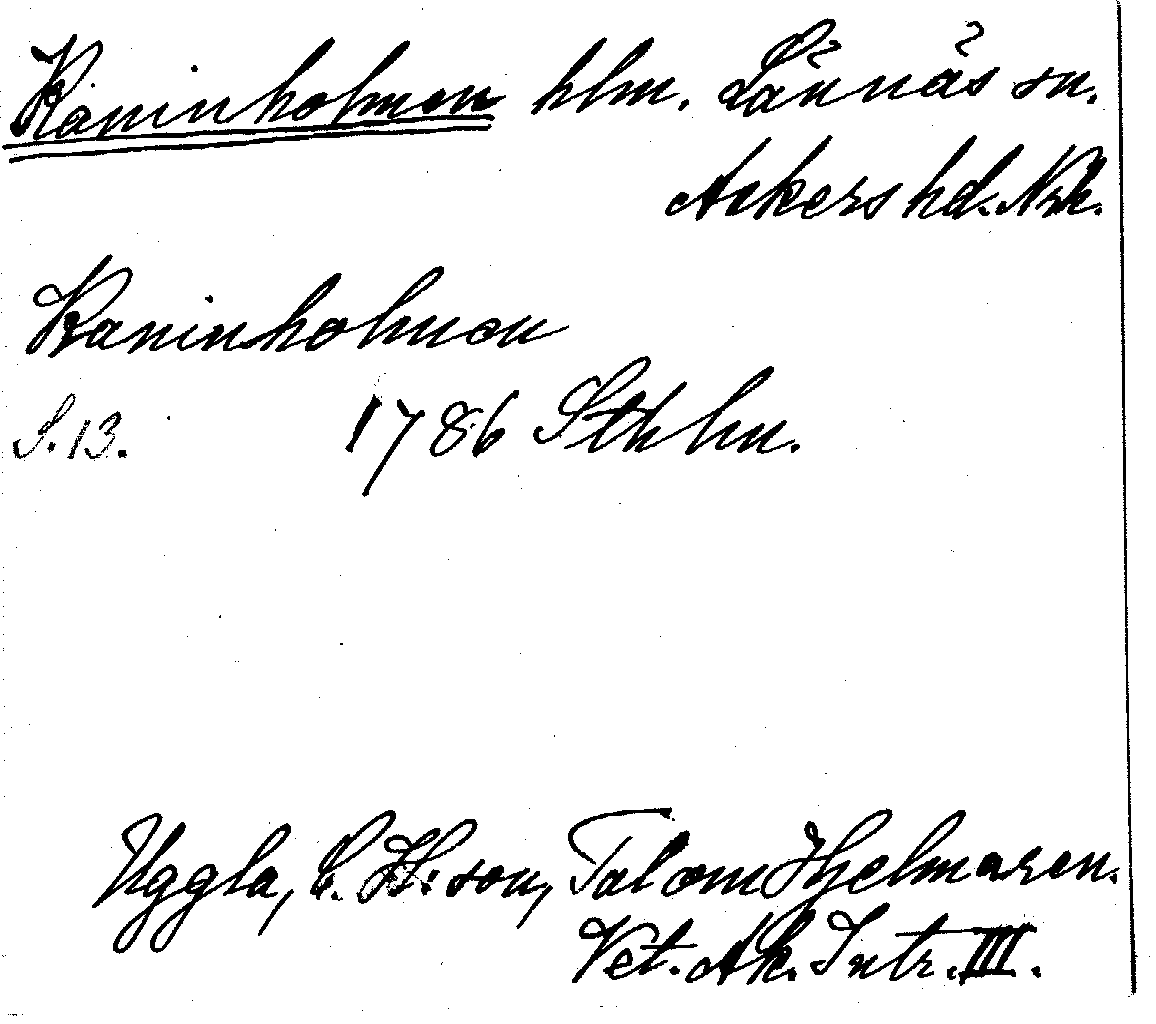 Kaninholmen hlm. Lännäs sn.
Askers hd. Nrk.
Kaninholmen
S. 13. 1786 Sthlm.
Uggla, C. H:son, Tal om Hjelmaren.
Vet. Ak. Intr. III.